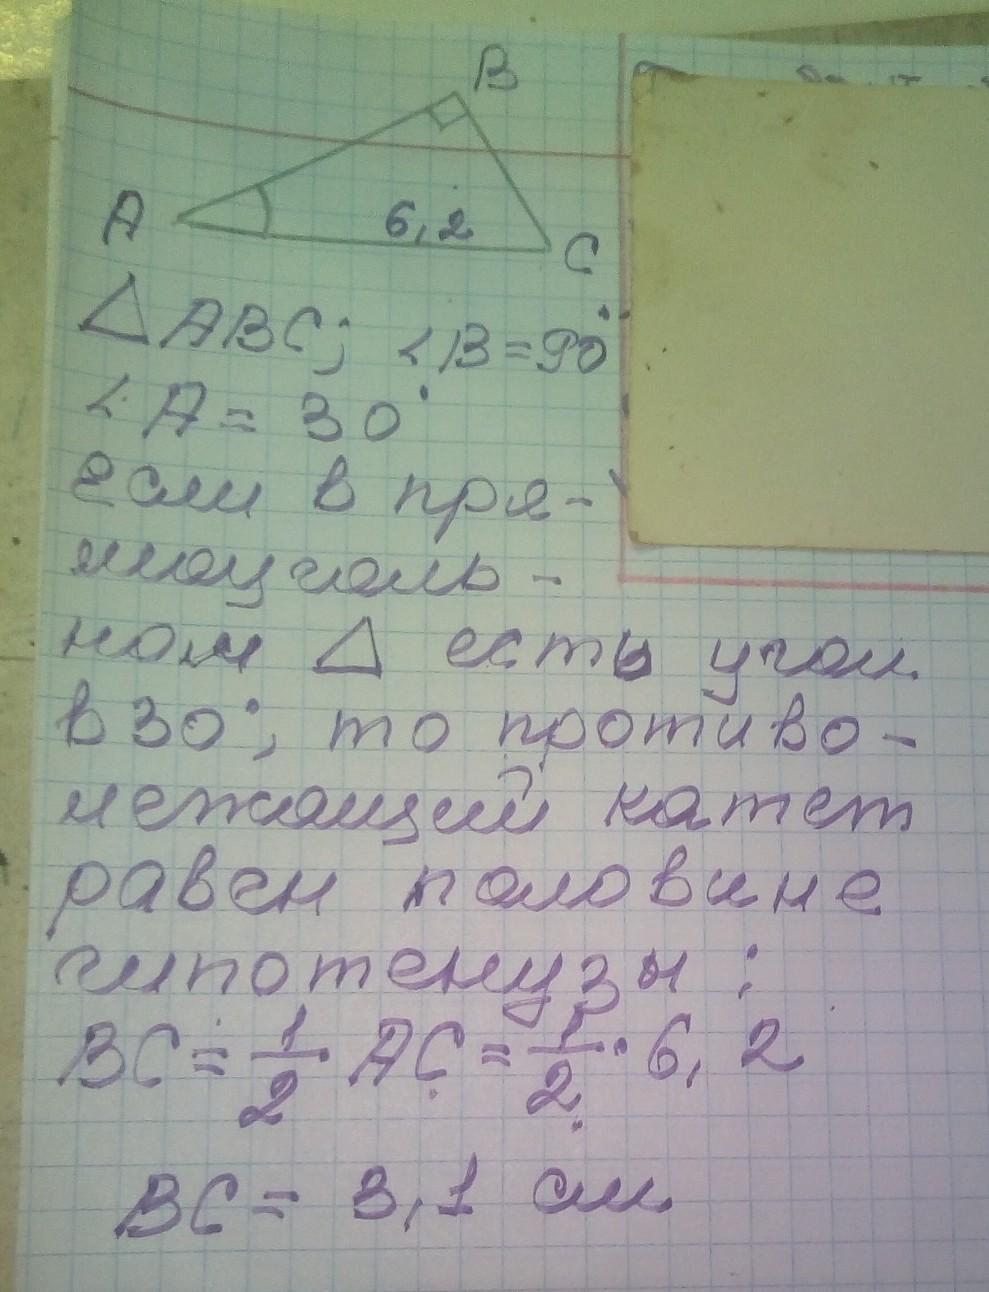 B
A
6,2
C
△ABC; ∠B=90°
∠A= 30°
если в пря-
моуголь-
ном △ есть угол
в 30°, то противо-
лежащий катет
равен половине
гипотенузы:
BC=1/2·AC=1/2·6,2
BC= 3,1 см